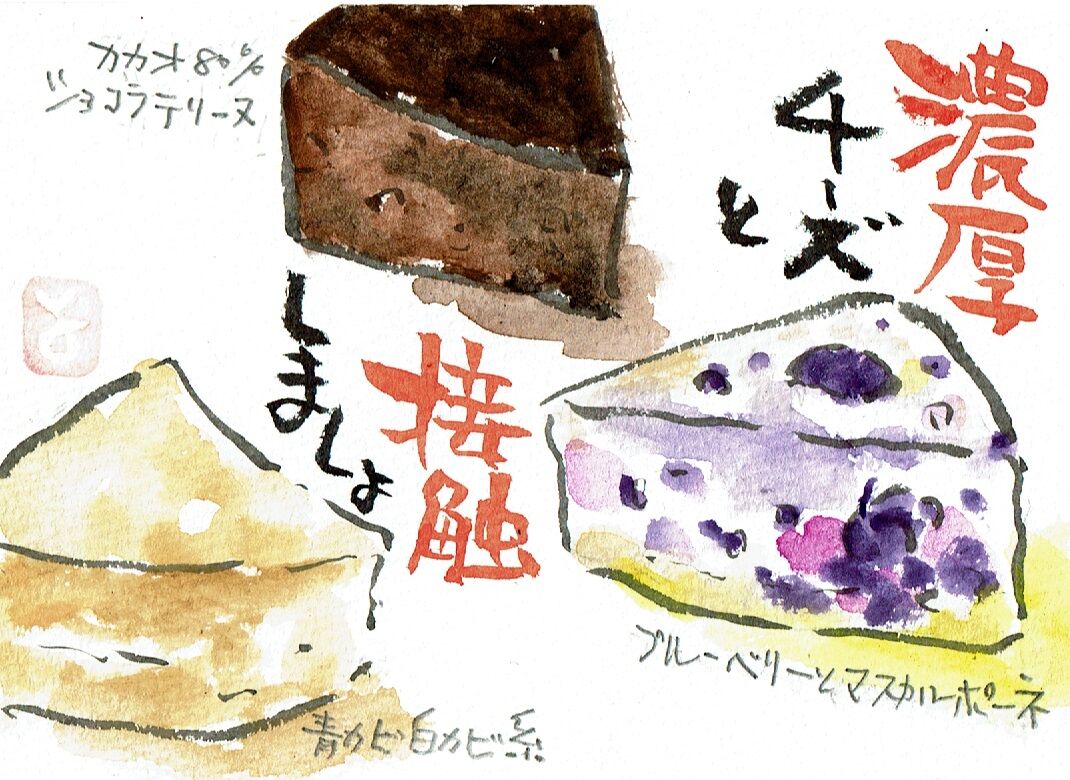 濃厚
チーズ
と
接触
しましょ
カカオ80%
ショコラテリーヌ
ブルーベリーとマスカルポーネ
青カビ白カビ系